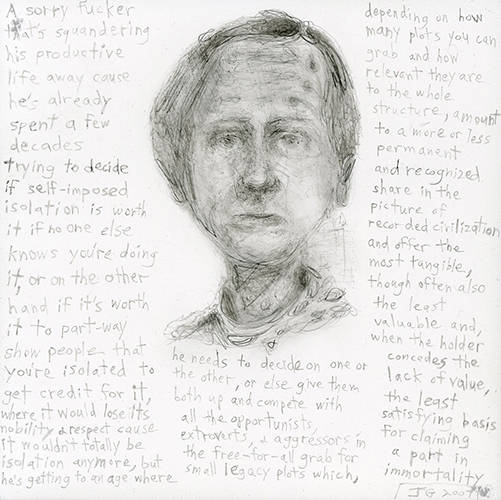 A sorry fucker
that's squandering
his productive
life away cause
he's already
spent a few
decades
trying to decide
if self-imposed
isolation is worth
it if no one else
knows you're doing
it, or on the other
hand if it's worth
it to part-way
show people that
you're isolated to
get credit for it,
where it would lose its
nobility & respect cause
it wouldn't totally be
isolation anymore, but
he's getting to an age where
he needs to decide on one or
the other, or else give them
both up and compete with
all the opportunists,
extroverts, & aggressors in
the free-for-all grab for
small legacy plots which,
depending on how
many plots you can
grab and how
relevant they are
to the whole
structure, amount
to a more or less
permanent
and recognized
share in the
picture of
recorded civilization
and offer the
most tangible,
though often also
the least
valuable and,
when the holder
concedes the
lack of value,
the least
satisfying basis
for claiming
a part in
immortality